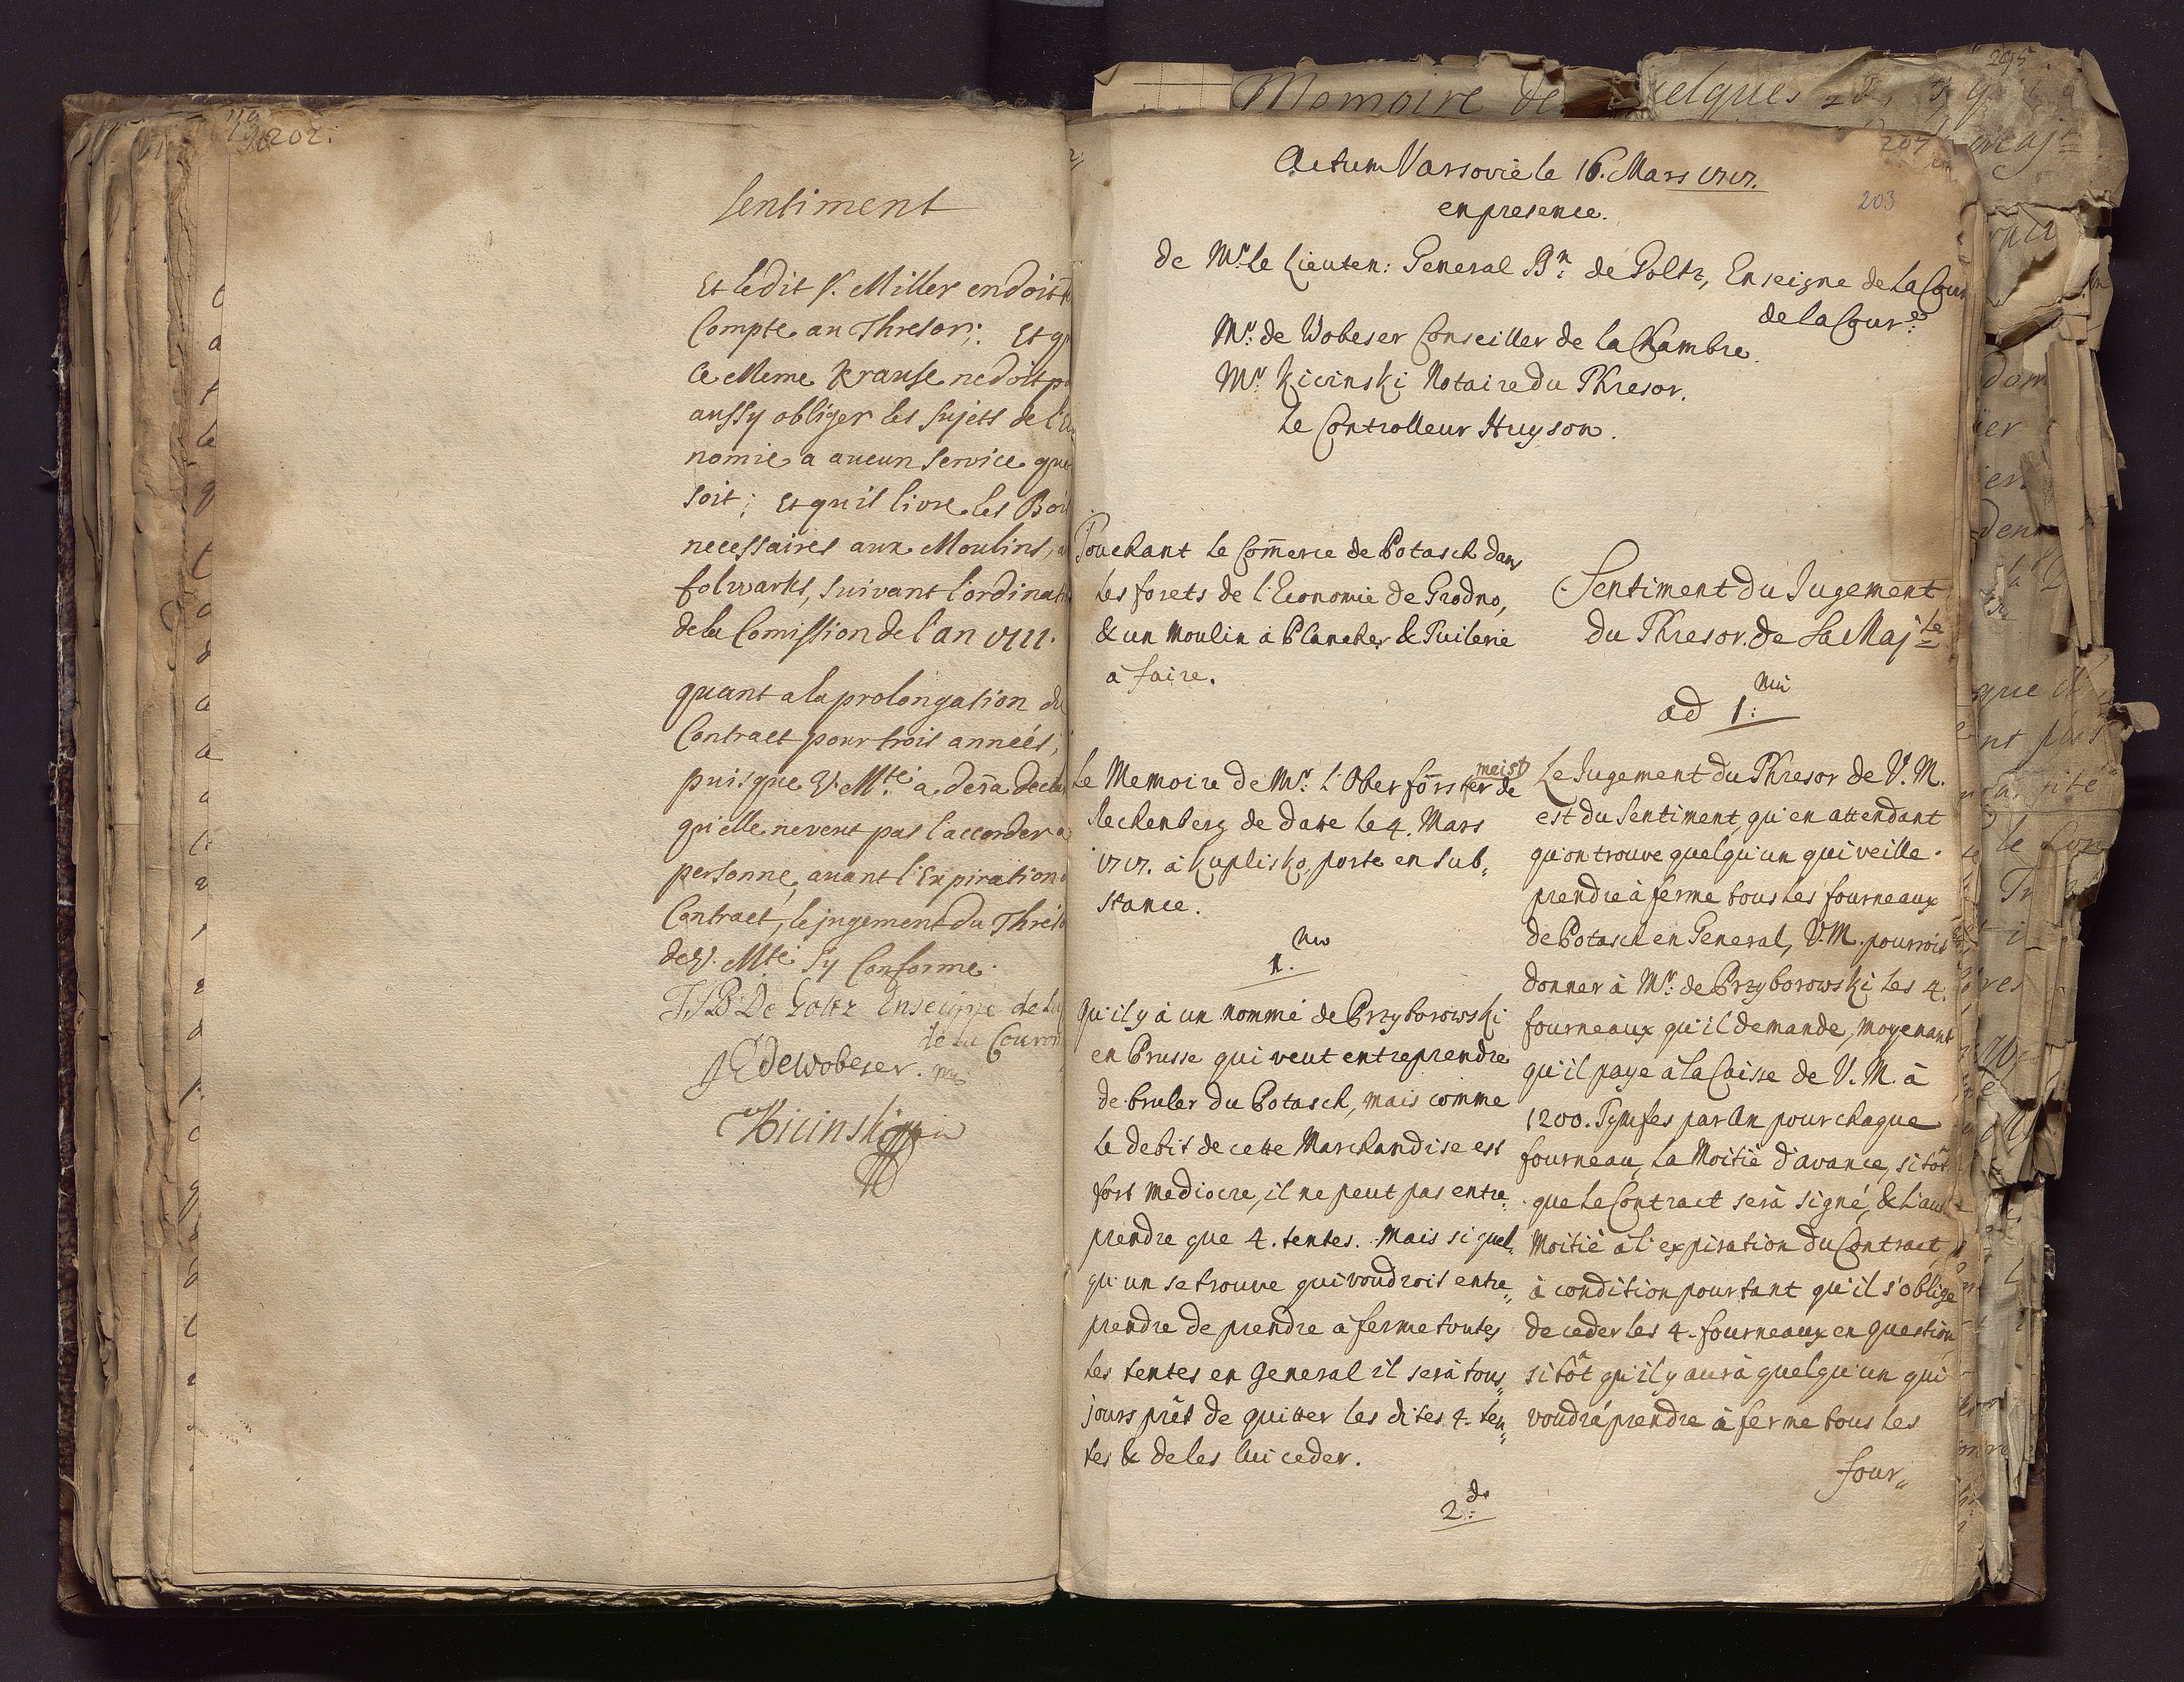 202.
Sentiment
Et ledit Sr. Miller en doit
Compte au Thresor; Et
Ce Meme Krause ne doit
aussy obliger les Sujets de
nomie a aucun Service
Soit; Et qu'il livre les
necessaires aux Moulins,
folwarks, Suivant l'ordina
de la Comission de l'an 1711.
quant a la prolongation du
Contract pour trois années,
puisque V. Mté. a desia
qu'elle ne veut pas l'accorder a
personne, avant l'Expiration
Contract, le jugement du
de V. Mté. Sy Conforme.
De Goltz Enseigne de la
de la
de Wobeser. mp
Kicinski
Memoire de quelques
205
204
203
Actum Varsovie le 16. Mars 1717.
en presence.
de Mr. le Lieuten: General Bn: de Goltz, Enseigne de la Cour
de la Cour:
Mr. de Wobeser Conseiller de la Chambre.
Mr. Kicinski Notaire du Thresor.
Le Controlleur Huyson.
Touchant le Com̄erce de Potasch dans
les forets de l'Economie de Grodno,
& un Moulin à Plancher & Tuilerie
à faire.
Le Memoire de Mr. l'Oberförstermeister de
Rechenberg de datte le 4. Mars
1717. à Kuplisko, porte en sub„
stance.
1.mo
Qu'il y à un nommé de Przyborowski
en Prusse qui veut entreprendre
de bruler du Potasch, mais comme
le debit de cette Marchandise est
fort mediocre, il ne peut pas entre„
prendre que 4. tentes. Mais si quel„
qu'un se trouve qui voudroit entre„
prendre de prendre a ferme toutes
les tentes en General il serà tous„
jours prêt de quitter les dites 4. ten„
tes & de les lui ceder.
2.do
Sentiment du Jugement
du Thresor de Sa Majté
ad 1:mũ
Le Jugement du Thresor de V. M.
est du Sentiment, qu'en attendant
qu'on trouve quelqu'un qui veille
prendre à ferme tous les fourneaux
de Potasch en General, V. M. pourroit
donner à Mr: de Przyborowski les 4.
fourneaux qu'il demande, moyenant
qu'il paye à la Caisse de V. M. à
1200. Tymfes par An pour chaque
fourneau, la Moitié d'avance, si tôt
que le Contract serà signé, & l'autre
Moitié à l'expiration du Contract,
à condition pourtant qu'il s'oblige
de ceder les 4. fourneaux en question,
si tôt qu'il y aurà quelqu'un qui
voudrà prendre à ferme tous les
four„